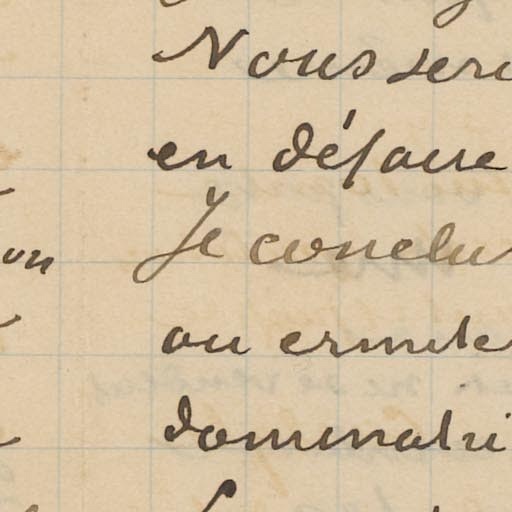 Nous seri
en défaire
on
Je conclu
ou ermite
dominatri